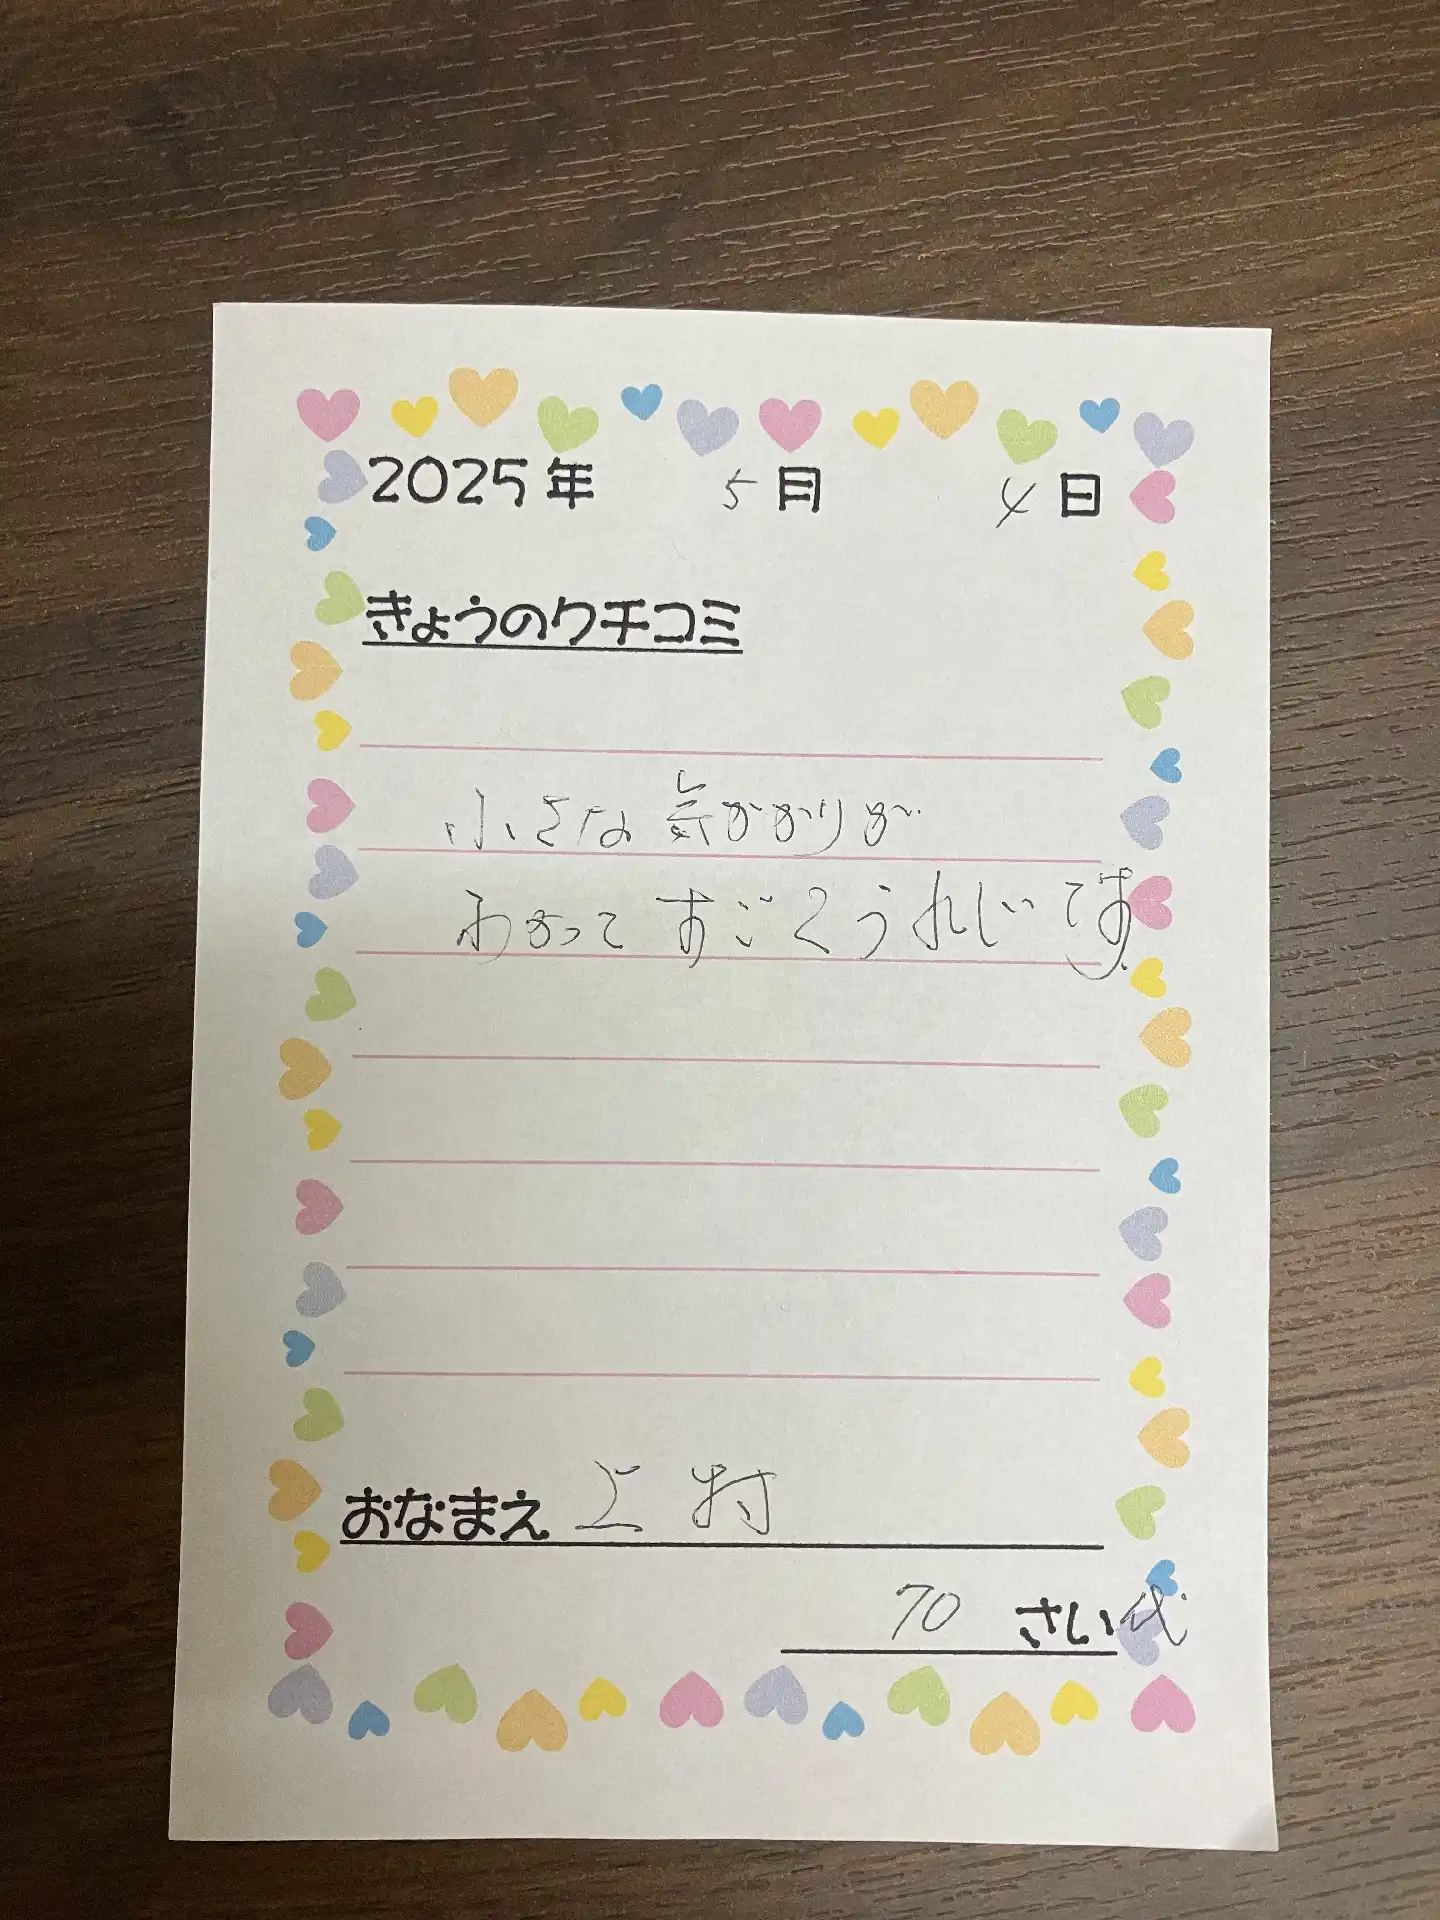 2025年 5月 4日
きょうのクチコミ
小さな気がかりが
わかってすごくうれしいです
おなまえ 上村
70 さい代